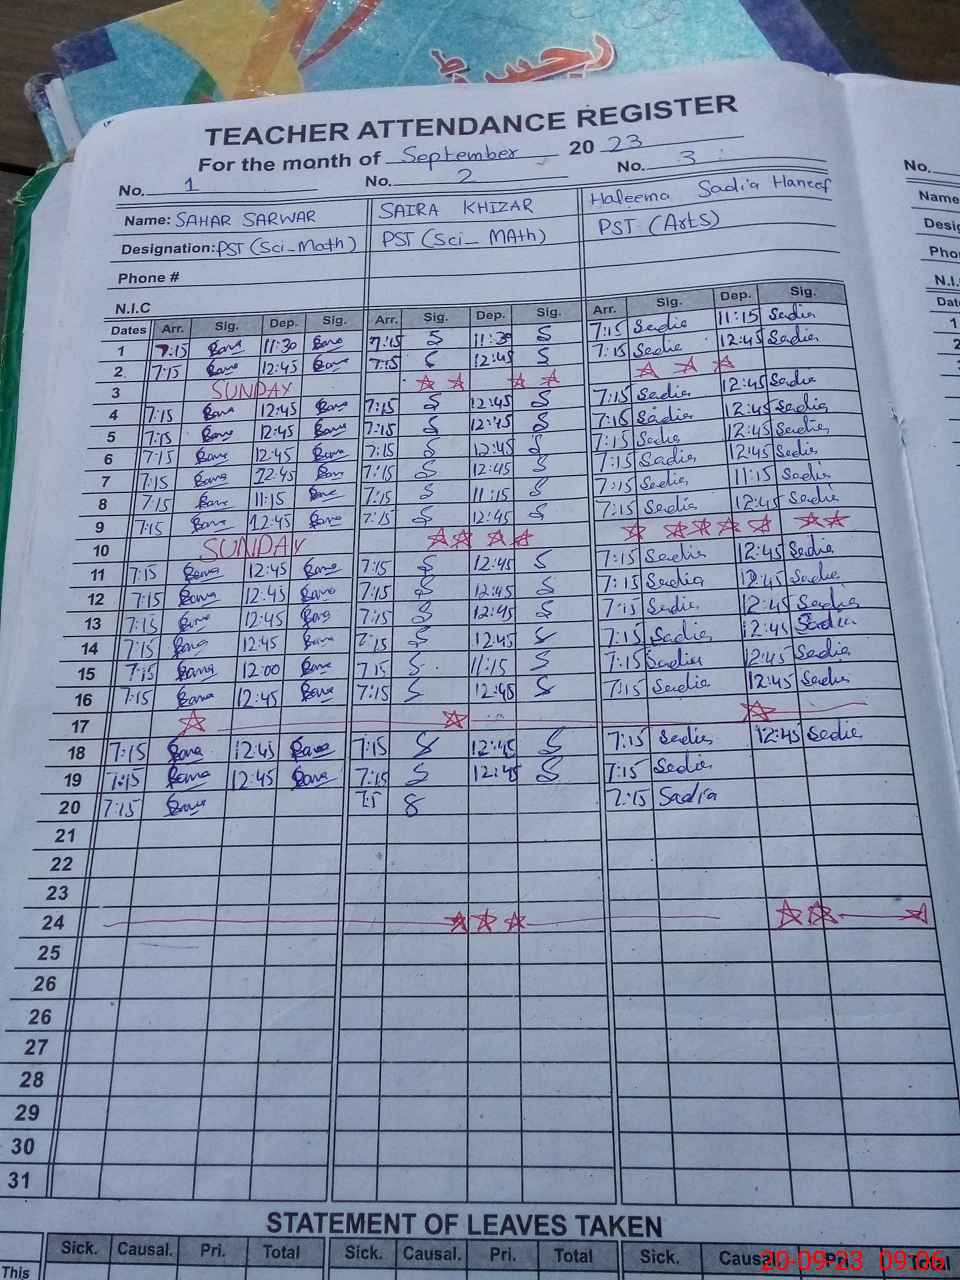 رجسٹر
TEACHER ATTENDANCE REGISTER
For the month of September 20 23
No. 1 No. 2 No. 3 No.
Name: SAHAR SARWAR SAIRA KHIZAR Haleema Sadia Haneef Name
Designation: PST (Sci_Math) PST (Sci_MAth) PST (Arts) Desig
Phone # Pho
N.I.C N.I.
Dates Arr. Sig. Dep. Sig. Arr. Sig. Dep. Sig. Arr. Sig. Dep. Sig. Dat
1 7:15 11:30 7:15 S 11:30 S 7:15 Sadia 11:15 Sadia
2 7:15 12:45 7:15 12:45 S 7:15 Sadia 12:45 Sadia
3 SUNDAY
4 7:15 12:45 7:15 S 12:45 S 7:15 Sadia 12:45 Sadia
5 7:15 12:45 7:15 S 12:45 S 7:15 Sadia 12:45 Sadia
6 7:15 12:45 7:15 S 12:45 S 7:15 Sadia 12:45 Sadia
7 7:15 12:45 7:15 S 12:45 S 7:15 Sadia 12:45 Sadia
8 7:15 11:15 7:15 S 11:15 S 7:15 Sadia 11:15 Sadia
9 7:15 12:45 7:15 S 12:45 S 7:15 Sadia 12:45 Sadia
10 SUNDAY
11 7:15 12:45 7:15 S 12:45 S 7:15 Sadia 12:45 Sadia
12 7:15 12:45 7:15 S 12:45 S 7:15 Sadia 12:45 Sadia
13 7:15 12:45 7:15 S 12:45 S 7:15 Sadia 12:45 Sadia
14 7:15 12:45 7:15 S 12:45 S 7:15 Sadia 12:45 Sadia
15 7:15 12:00 7:15 S 11:15 S 7:15 Sadia 12:45 Sadia
16 7:15 12:45 7:15 S 12:45 S 7:15 Sadia 12:45 Sadia
17
18 7:15 12:45 7:15 S 12:45 S 7:15 Sadia 12:45 Sadia
19 7:15 12:45 7:15 S 12:45 S 7:15 Sadia
20 7:15 7:15 7:15 Sadia
21
22
23
24
25
26
26
27
28
29
30
31
STATEMENT OF LEAVES TAKEN
Sick. Causal. Pri. Total Sick. Causal. Pri. Total Sick. Causal. Pri. Total
This
20-09-23 09:06